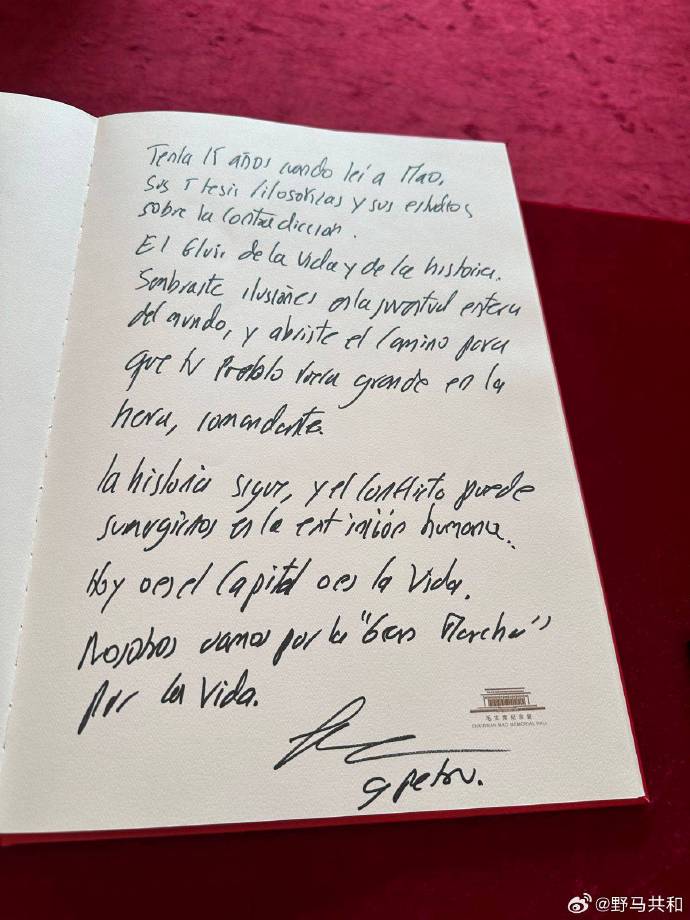 Tenia 15 años cuando leí a Mao,
sus Tesis filosoficas y sus estudios
sobre la contradiccion.
El fluir de la vida y de la historia.
Sembraste ilusiones en la juventud entera
del mundo, y abriste el camino para
que tu Pueblo fuera grande en la
, comandante.
la historia sigue, y el conflicto puede
sumergirnos en la extinción humana.
Hoy o es el Capital o es la Vida.
Nosotros vamos por la "Gran Marcha"
por la Vida.
毛主席纪念堂
CHAIRMAN MAO MEMORIAL HALL
G Petro.
@野马共和